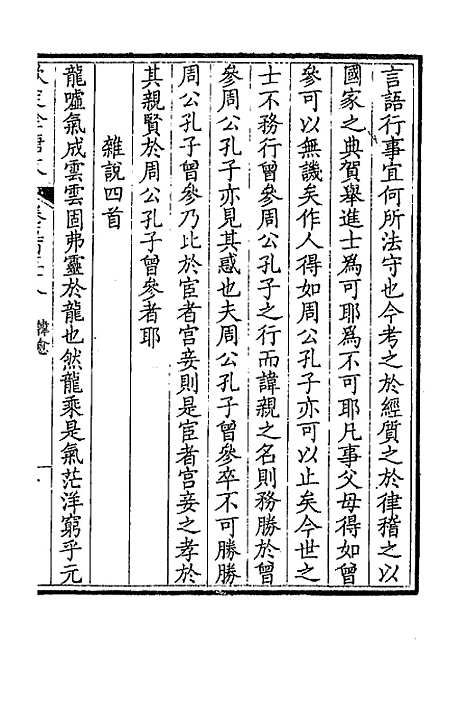 言語行事宜何所法守也今考之於經質之於律稽之以
國家之典賀舉進士爲可耶爲不可耶凡事父母得如曾
參可以無譏矣作人得如周公孔子亦可以止矣今世之
士不務行曾參周公孔子之行而諱親之名則務勝於曾
參周公孔子亦見其惑也夫周公孔子曾參卒不可勝勝
周公孔子曾參乃比於宦者宮妾則是宦者宮妾之孝於
其親賢於周公孔子曾參者耶
雜說四首
龍噓氣成雲雲固弗靈於龍也然龍乘是氣茫洋窮乎元
韓愈